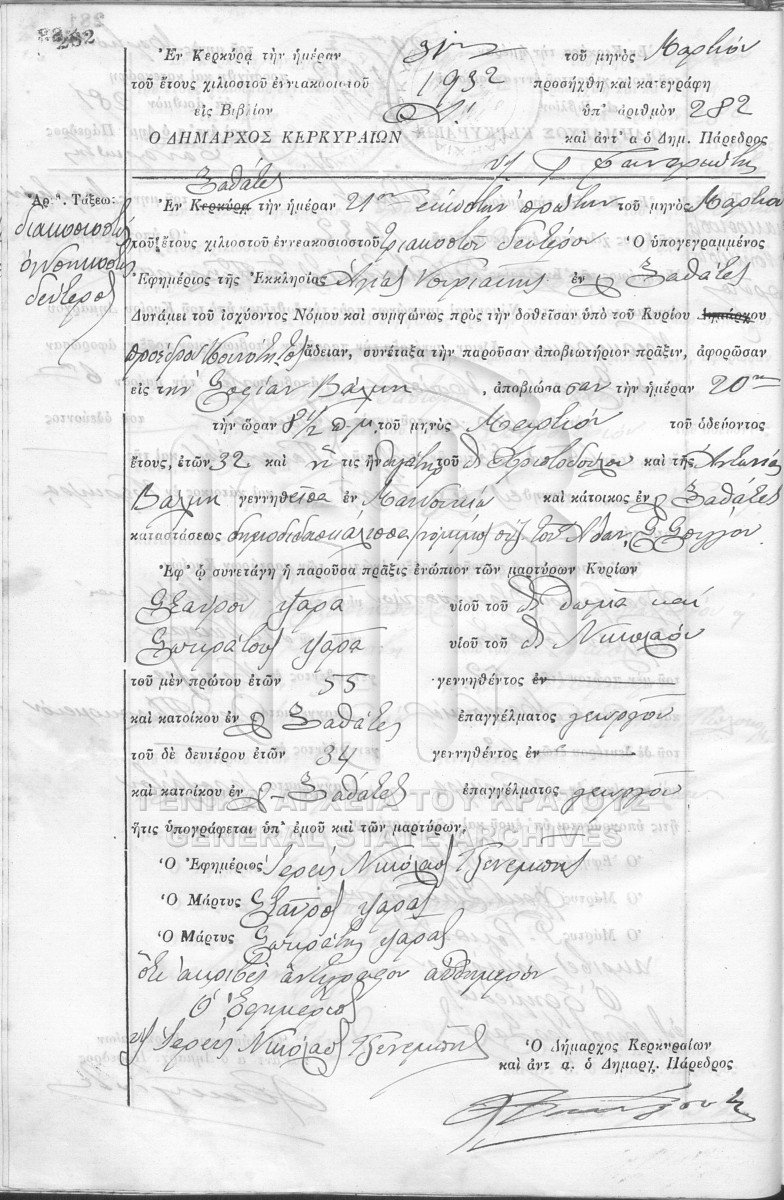 282
Ἐν Κερκύρᾳ τὴν ἡμέραν 31ην τοῦ μηνὸς Μαρτίου
τοῦ ἔτους χιλιοστοῦ ἐννιακοσιοστοῦ 1932 προσήχθη καὶ κατεγράφη
εἰς Βιβλίον ὑπ' ἀριθμὸν 282
Ο ΔΗΜΑΡΧΟΣ ΚΕΡΚΥΡΑΙΩΝ καὶ ἀντ' α ὁ Δημ. Πάρεδρος
Ξαθάτες
Ἀρ. Τάξεως Ἐν Κερκύρᾳ τὴν ἡμέραν 21ην εἰκοστὴν πρώτην τοῦ μηνὸς Μαρτίου
διακοσιοστὸς τοῦ ἔτους χιλιοστοῦ ἐννεακοσιοστοῦ τριακοστοῦ δευτέρου Ὁ ὑπογεγραμμένος
ὀγδοηκοστὸς
δεύτερος Ἐφημέριος τῆς Ἐκκλησίας Ἁγίας Κυριακῆς ἐν Ξαθάτες
Δυνάμει τοῦ ἰσχύοντος Νόμου καὶ συμφώνως πρὸς τὴν δοθεῖσαν ὑπὸ τοῦ Κυρίου Δημάρχου
προέδρου Κοινότητος ἄδειαν, συνέταξα τὴν παροῦσαν ἀποβιωτήριον πρᾶξιν, ἀφορῶσαν
εἰς τὴν Σοφίαν ἀποβιώσασαν τὴν ἡμέραν 20ην
τὴν ὥραν 8 1/2 π.μ. τοῦ μηνὸς Μαρτίου τοῦ ὁδεύοντος
ἔτους, ἐτῶν 32 καὶ ἥτις ἦν θυγάτηρ τοῦ Χριστοδούλου καὶ τῆς Ἀντωνίας
γεννηθεῖσα ἐν καὶ κάτοικος ἐν Ξαθάτες
καταστάσεως δημοδιδασκάλισσα
Ἐφ' ᾧ συνετάγη ἡ παροῦσα πρᾶξις ἐνώπιον τῶν μαρτύρων Κυρίων
Σταύρου Ψαρᾶ υἱοῦ τοῦ Θωμᾶ καὶ
Σωκράτους Ψαρᾶ υἱοῦ τοῦ Νικολάου
τοῦ μὲν πρώτου ἐτῶν 55 γεννηθέντος ἐν
καὶ κατοίκου ἐν Ξαθάτες ἐπαγγέλματος γεωργοῦ
τοῦ δὲ δευτέρου ἐτῶν 34 γεννηθέντος ἐν
καὶ κατοίκου ἐν Ξαθάτες ἐπαγγέλματος γεωργοῦ
ΓΕΝΙΚΑ ΑΡΧΕΙΑ ΤΟΥ ΚΡΑΤΟΥΣ
ἥτις ὑπογράφεται ὑπ' ἐμοῦ καὶ τῶν μαρτύρων,
GENERAL STATE ARCHIVES
Ὁ Ἐφημέριος Ἱερεὺς Νικόλαος
Ὁ Μάρτυς Σταῦρος Ψαρᾶς
Ὁ Μάρτυς Σωκράτης Ψαρᾶς
ὅτι ἀκριβὲς ἀντίγραφον αὐθημερὸν
Ὁ Ἐφημέριος
Ἱερεὺς Νικόλαος
Ὁ Δήμαρχος Κερκυραίων
καὶ ἀντ α. ὁ Δημαρχ. Πάρεδρος